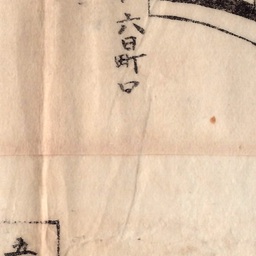 六日町口
五